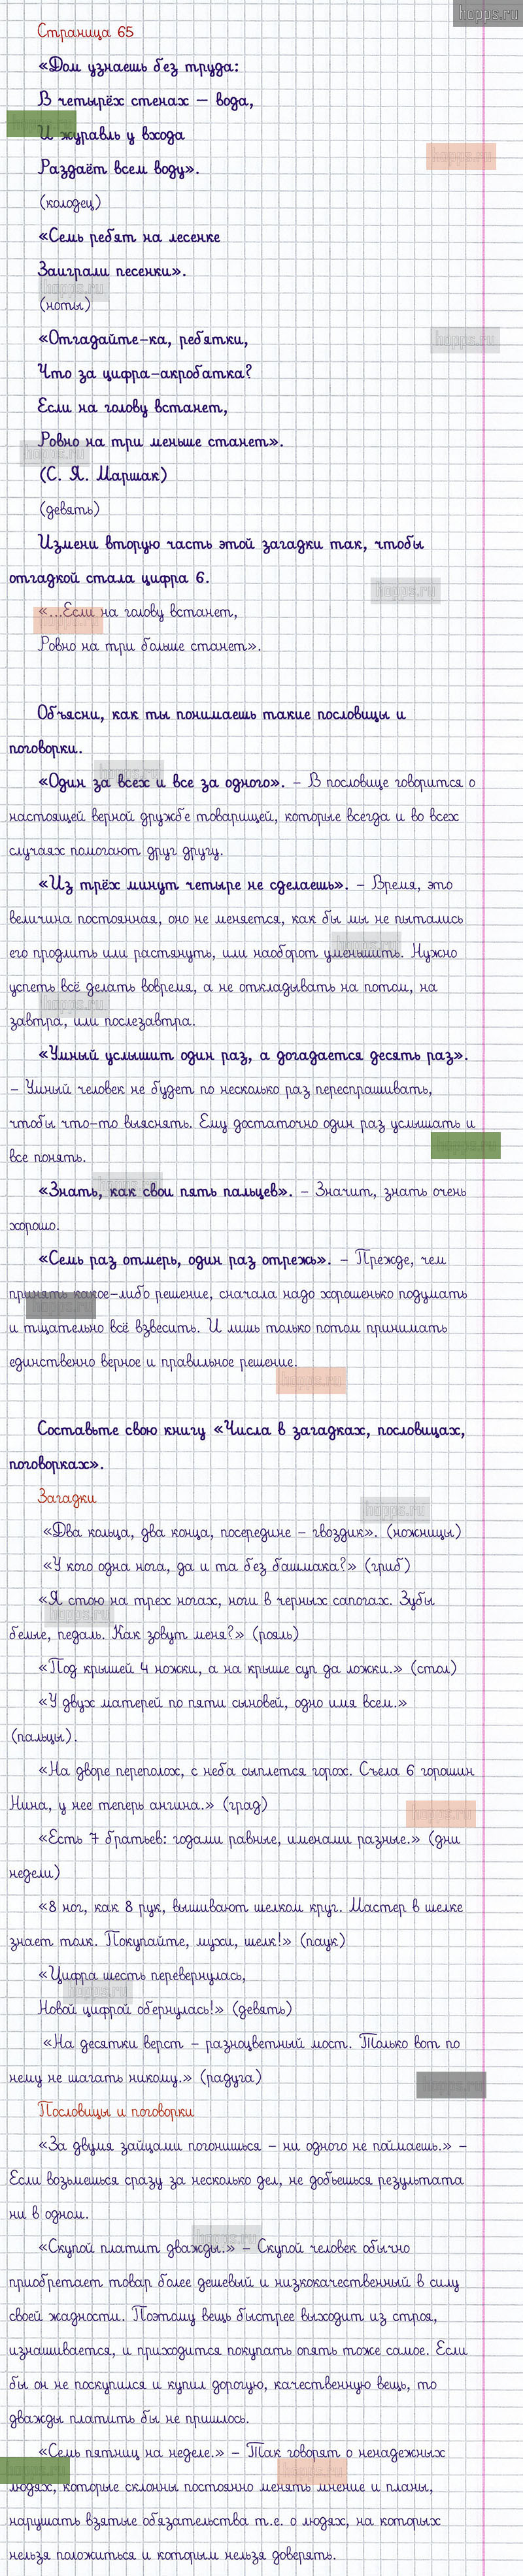 hopps.ru
Страница 65
«Дом узнаешь без труда:
В четырёх стенах – вода,
И журавль у входа
Раздаёт всем воду».
(колодец)
«Семь ребят на лесенке
Заиграли песенки».
(ноты)
«Отгадайте-ка, ребятки,
Что за цифра-акробатка?
Если на голову встанет,
Ровно на три меньше станет».
(С. Я. Маршак)
(девять)
Измени вторую часть этой загадки так, чтобы
отгадкой стала цифра 6.
«...Если на голову встанет,
Ровно на три больше станет».
Объясни, как ты понимаешь такие пословицы и
поговорки.
«Один за всех и все за одного». – В пословице говорится о
настоящей верной дружбе товарищей, которые всегда и во всех
случаях помогают друг другу.
«Из трёх минут четыре не сделаешь». – Время, это
величина постоянная, оно не меняется, как бы мы не пытались
его продлить или растянуть, или наоборот уменьшить. Нужно
успеть всё делать вовремя, а не откладывать на потом, на
завтра, или послезавтра.
«Умный услышит один раз, а догадается десять раз».
– Умный человек не будет по несколько раз переспрашивать,
чтобы что-то выяснять. Ему достаточно один раз услышать и
все понять.
«Знать, как свои пять пальцев». – Значит, знать очень
хорошо.
«Семь раз отмерь, один раз отрежь». – Прежде, чем
принять какое-либо решение, сначала надо хорошенько подумать
и тщательно всё взвесить. И лишь только потом принимать
единственно верное и правильное решение.
Составьте свою книгу «Числа в загадках, пословицах,
поговорках».
Загадки
«Два кольца, два конца, посередине – гвоздик». (ножницы)
«У кого одна нога, да и та без башмака?» (гриб)
«Я стою на трех ногах, ноги в черных сапогах. Зубы
белые, педаль. Как зовут меня?» (рояль)
«Под крышей 4 ножки, а на крыше суп да ложки.» (стол)
«У двух матерей по пяти сыновей, одно имя всем.»
(пальцы).
«На дворе переполох, с неба сыплется горох. Съела 6 горошин
Нина, у нее теперь ангина.» (град)
«Есть 7 братьев: годами равные, именами разные.» (дни
недели)
«8 ног, как 8 рук, вышивают шелком круг. Мастер в шелке
знает толк. Покупайте, мухи, шелк!» (паук)
«Цифра шесть перевернулась,
Новой цифрой обернулась!» (девять)
«На десятки верст – разноцветный мост. Только вот по
нему не шагать никому.» (радуга)
Пословицы и поговорки
«За двумя зайцами погонишься – ни одного не поймаешь.» –
Если возьмешься сразу за несколько дел, не добьешься результата
ни в одном.
«Скупой платит дважды.» – Скупой человек обычно
приобретает товар более дешевый и низкокачественный в силу
своей жадности. Поэтому вещь быстрее выходит из строя,
изнашивается, и приходится покупать опять тоже самое. Если
бы он не поскупился и купил дорогую, качественную вещь, то
дважды платить бы не пришлось.
«Семь пятниц на неделе.» – Так говорят о ненадежных
людях, которые склонны постоянно менять мнение и планы,
нарушать взятые обязательства т.е. о людях, на которых
нельзя положиться и которым нельзя доверять.